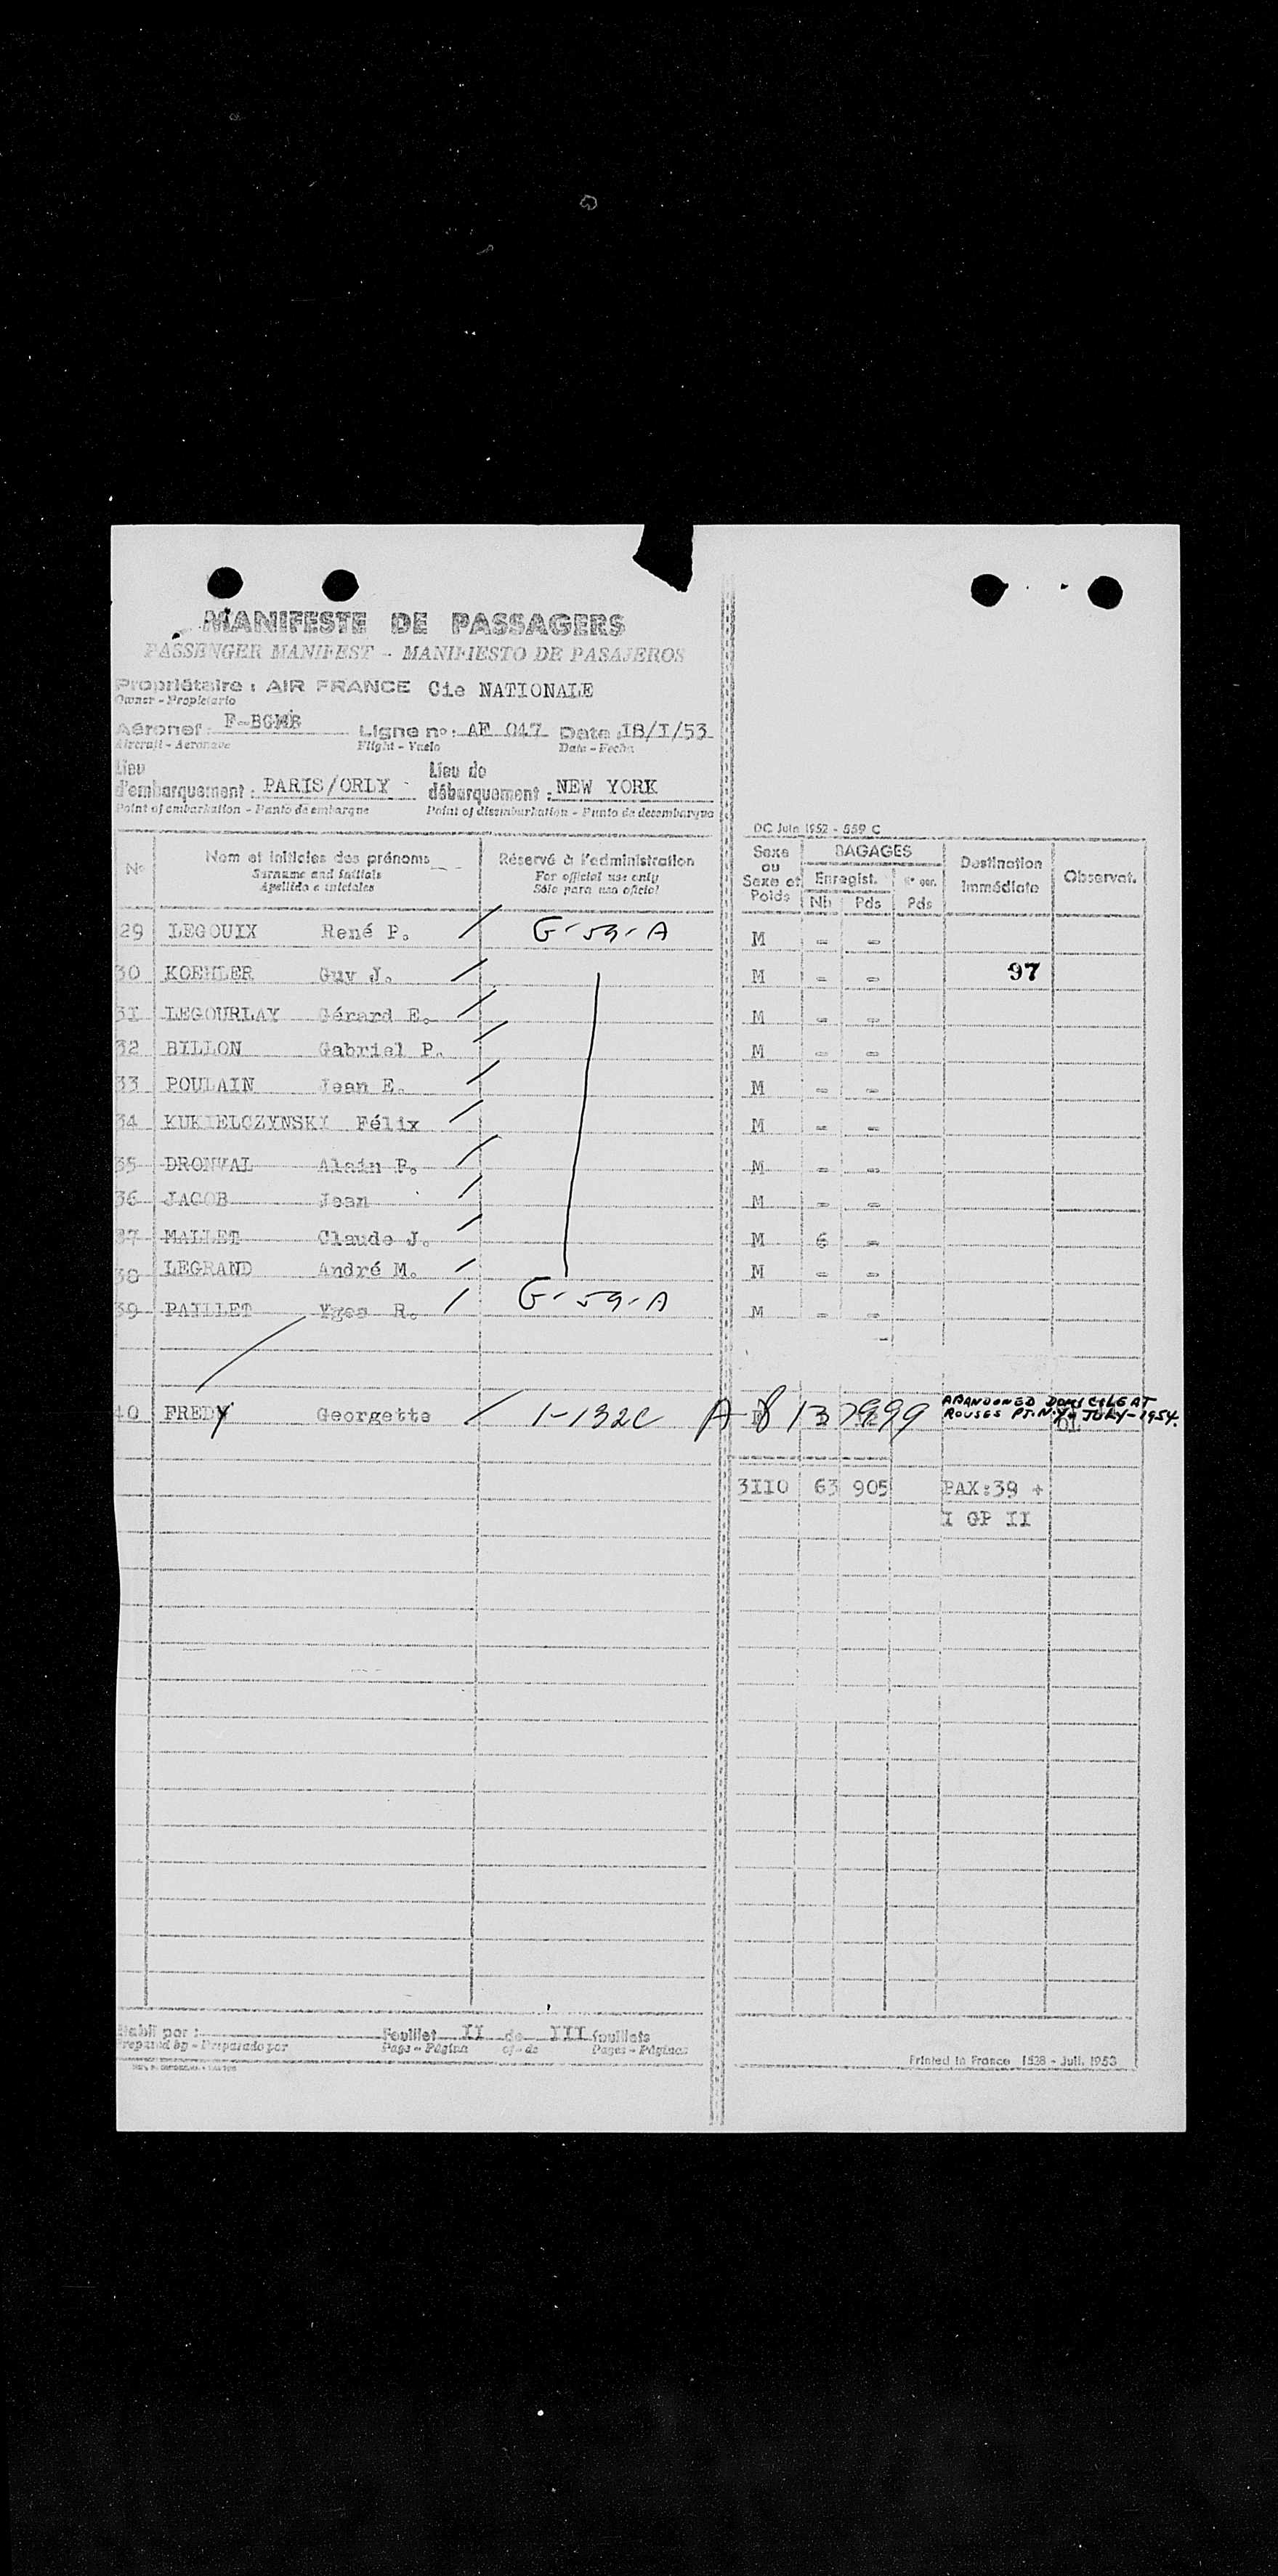 MANIFESTE DE PASSAGERS
PASSENGER MANIFEST - MANIFIESTO DE PASAJEROS
Propriétaire : AIR FRANCE Cie NATIONALE
Owner - Propietario
Aéronef : F-BGMB Ligne no : AF 047 Date : I8/I/53
Aircraft - Aeronave Flight - Vuelo Date - Fecha
Lieu d'embarquement : PARIS/ORLY Lieu de débarquement : NEW YORK
Point of embarkation - Punto de embarque Point of disembarkation - Punto de desembarque
OC Juin 1952 - 559 C
No Nom et initiales des prénoms Réservé à l'administration Sexe ou Sexe et Poids BAGAGES Destination Immédiate Observat.
Surname and initials For official use only Enregist.
Apellido e iniciales Sólo para uso oficial Nb Pds Pds
29 LEGOUIX René P. / G-59-A M - -
30 KOEHLER Guy J. / M - - 97
3I LEGOURLAY Gérard E. / M - -
32 BILLON Gabriel P. / M - -
33 POULAIN Jean E. / M - -
34 KUKIELCZYNSKY Félix / M - -
35 DRONVAL Alain P. / M - -
36 JACOB Jean / M - -
37 MALLET Claude J. / M 6 -
38 LEGRAND André M. / M - -
39 PAILLET Yges R. / G-59-A M - -
40 FREDY Georgette / 1-132C A-8 137999 ABANDONED DOMICILE AT
ROUSES PT. N.Y. JULY-1954.
3II0 63 905 PAX:39 +
I GP II
Etabli par : Feuillet II de III feuillets
Prepared by - Preparado por Page - Página of - de Pages - Páginas
Printed in France 1528 - Juil. 1953